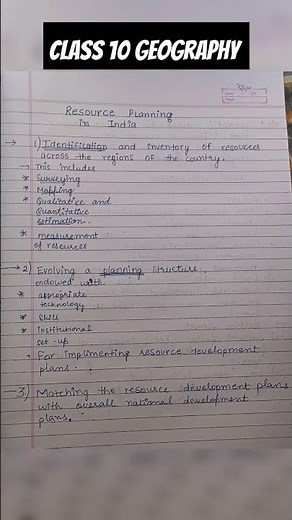 CLASS 10 GEOGRAPHY
Date
Page
Resource Planning
in India
→ 1) Identification and inventory of resources
across the regions of the country.
→ This includes
* Surveying
* Mapping
* Qualitative and
Quantitative
estimation.
* measurement
of resources
→ 2) Evolving a planning structure,
endowed with
* appropriate
technology
* skill
* institutional
set-up
• For implimenting resource development
plans.
→ 3) Matching the resource development plans
with overall national development
plans.